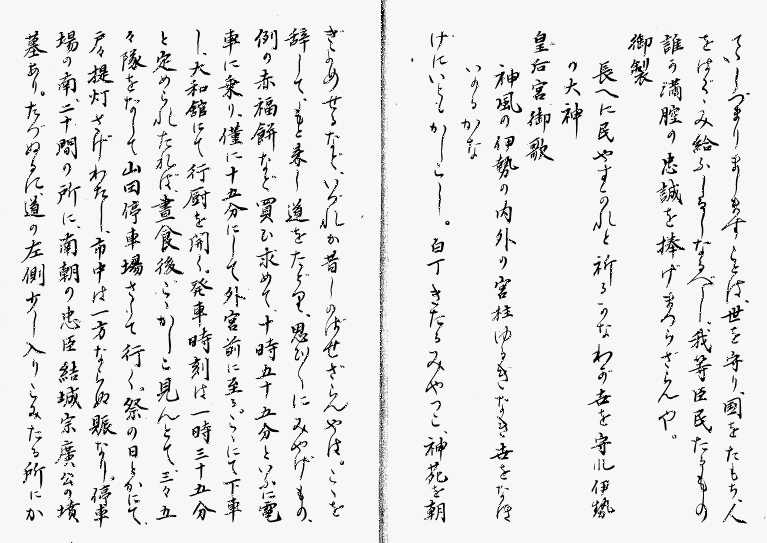 てしづまりましますことは、世を守り、國をたもち、人
をはぐゝみ給ふしるしなるべし、我等臣民たるもの
誰か満腔の忠誠を捧げまつらざらんや。
御製
長へに民やすかれと祈るかなわが世を守れ伊勢
の大神
皇后宮御歌
神風の伊勢の内外の宮柱ゆるぎなき世をなほ
いのるかな
げにいともかしこし。白丁きたるみやつこ、神苑を朝
ぎよめせるなど、いづれか昔しのばせざらんやは。こゝを
辞して、もと来し道をたどり、思ひ〳〵にみやげもの、
例の赤福餅など買ひ求めて、十時五十五分といふに電
車に乗り、僅に十五分にして外宮前に至る。こゝにて下車
し、大和舘にて行厨を開く。発車時刻は一時三十五分
と定められたれば、晝食後こゝかしこ見んとて、三々五
々隊をなして山田停車場さして行く。祭の日とかにて、
戸々提灯さげわたし、市中は一方ならぬ賑なり。停車
場の南、二十間の所に、南朝の忠臣結城宗廣公の墳
墓あり。たづぬるに、道の左側少し入りこみたる所にか